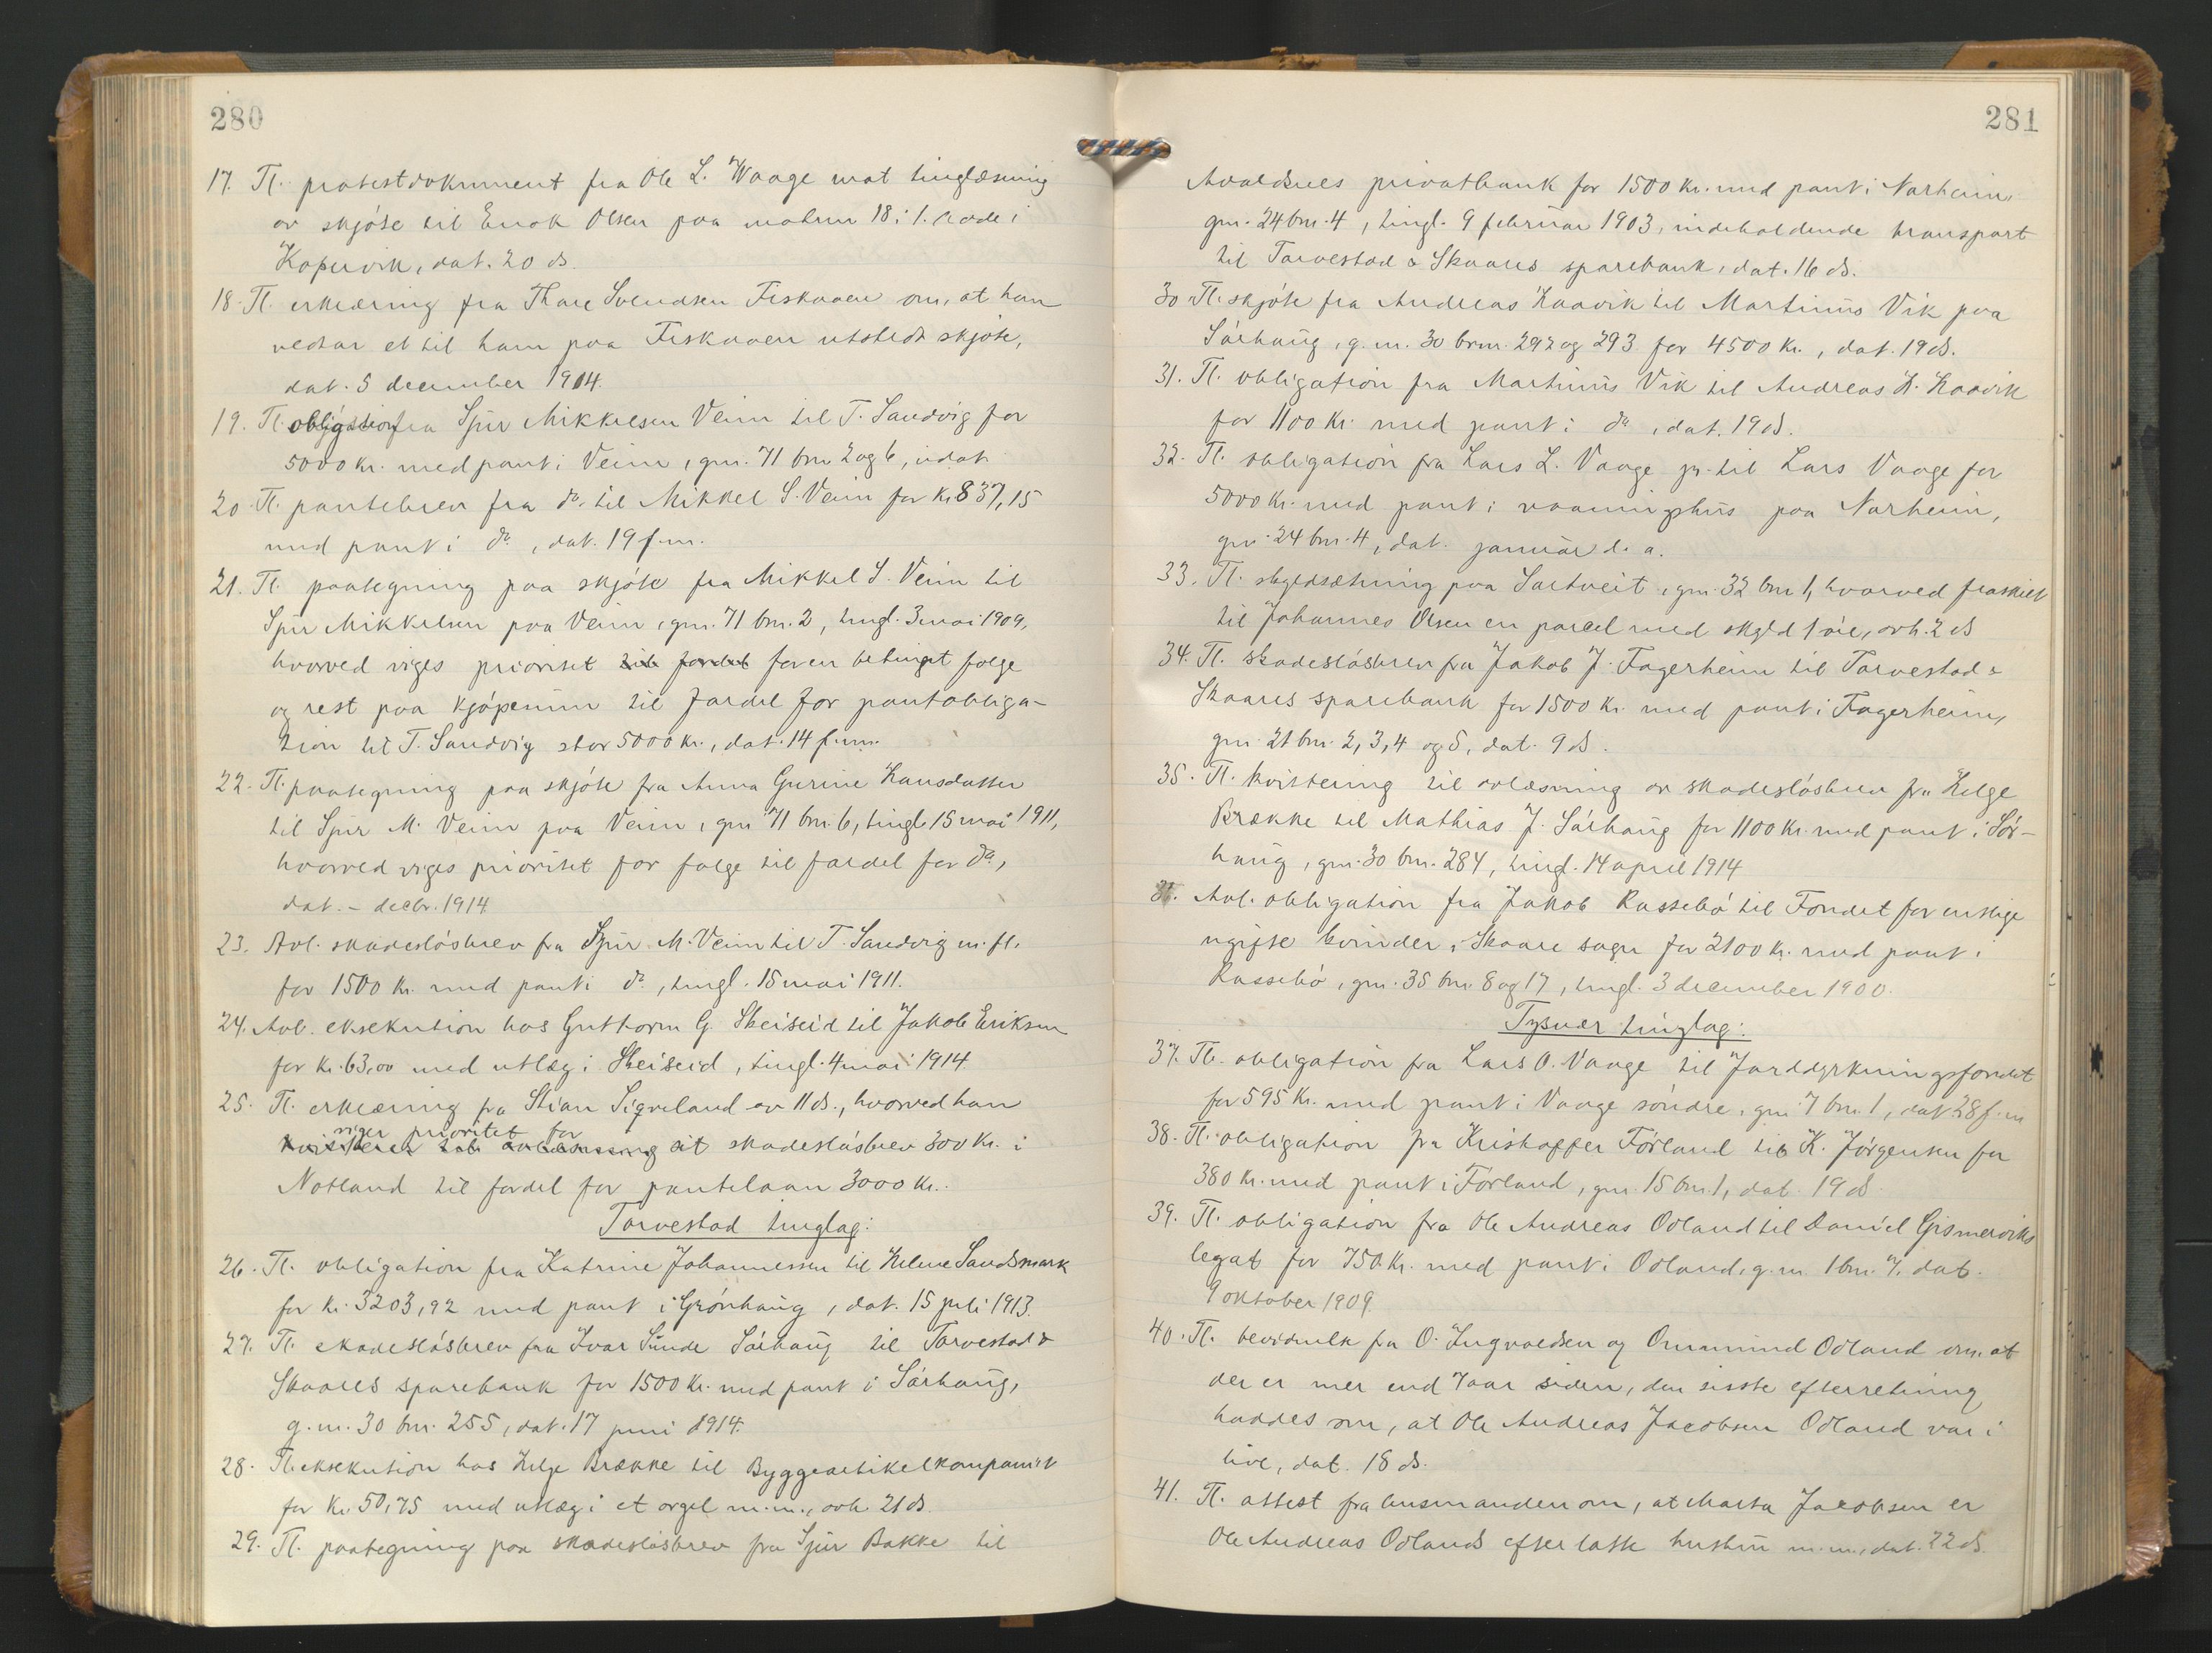 280
17. Tl. protestdokument fra Ole L. Waage mot tinglæsning
av skjøte til Enok Olsen paa matrnr 18 i 1. rode i
Kopervik, dat. 20 ds.
18. Tl. erklæring fra Thore Svendsen Fiskaaen om, at han
vedtar et til ham paa Fiskaaen utstedt skjøte,
dat. 5 december 1914.
19. Tl. obligation fra Sjur Mikkelsen Veim til T. Sandvig for
5000 kr. med pant i Veim, gnr. 71 bnr 2 og 6, udat.
20. Tl. pantebrev fra do. til Mikkel S. Veim for Kr 837,15
med pant i do., dat. 19 f.m.
21. Tl. paategning paa skjøte fra Mikkel S. Veim til
Sjur Mikkelsen paa Veim, gnr. 71 bnr. 2, tingl. 3 mai 1909,
hvorved viges prioritet til fordel for en betinget følge
og rest paa kjøpesum til fordel for pantobliga-
tion til T. Sandvig stor 5000 kr., dat. 14 f.m.
22. Tl. paategning paa skjøte fra Anna Gurine Hansdatter
til Sjur M. Veim paa Veim, gnr 71 bnr. 6, tingl. 15 mai 1911,
hvorved viges prioritet for følge til fordel for do.,
dat. - decbr. 1914
23. Avl. skadesløsbrev fra Sjur M. Veim til T. Sandvig m. fl.
for 1500 kr. med pant i do., tingl. 15 mai 1911.
24. Avl. eksekution hos Guttorm G. Skeiseid til Jakob Eriksen
for kr. 63,00 med utlæg i Skeiseid, tingl. 4 mai 1914.
25. Tl. erklæring fra Stian Sigveland av 11 ds., hvorved han
viger prioritet for
kvitterer til avlæsning sit skadesløsbrev 300 kr. i
Notland til fordel for pantelaan 3000 kr.
Torvestad tinglag:
26. Tl. obligation fra Katrine Johannessen til Helene Sandsmark
for kr. 3203,92 med pant i Grønhaug, dat. 15 juli 1913.
27. Tl. skadesløsbrev fra Ivar Sunde Sørhaug til Torvestad &
Skaares sparebank for 1500 kr. med pant i Sørhaug,
g.nr. 30 bnr. 255, dat. 17 juni 1914.
28. Tl. eksekution hos Helge Brække til Byggeartikelkompaniet
for Kr. 50,75 med utlæg i et orgel m.m., avh. 21 ds.
29. Tl. paategning paa skadesløsbrev fra Sjur Bakke til
281
Avaldsnes privatbank for 1500 Kr. med pant i Norheim,
gnr. 24 bnr. 4, tingl. 9 februar 1903, indeholdende transport
til Torvestad & Skaares sparebank, dat. 16 ds.
30 Tl. skjøte fra Andreas Haavik til Martinus Vik paa
Sørhaug, g.nr. 30 brnr. 292 og 293 for 4500 Kr., dat. 19 ds.
31. Tl. obligation fra Martinus Vik til Andreas H. Haavik
for 1100 Kr. med pant i do, dat. 19 ds.
32. Tl. obligation fra Lars L. Vaage jr. til Lars Vaage for
5000 Kr. med pant i vaaningshus paa Norheim,
gnr. 24 bnr. 4, dat. januar d. a.
33. Tl. skyldsætning paa Sartveit, gnr. 32 bnr 1, hvorved fraskilt
til Johannes Olsen en parcel med skyld 1 øre, avh. 2 ds
34. Tl. skadesløsbrev fra Jakob J. Fagerheim til Torvestad &
Skaares sparebank for 1500 Kr. med pant i Fagerheim,
gnr. 21 bnr. 2, 3, 4 og 5, dat. 9 ds.
35. Tl. kvittering til avlæsning av skadesløsbrev fra Helge
Brække til Mathias J. Sørhaug for 1100 Kr. med pant i Sør-
haug, gnr. 30 bnr. 284, tingl. 14 april 1914
36. Avl. obligation fra Jakob Rassebø til Fondet for enslige
ugifte kvinder i Skaare sogn for 2100 Kr. med pant i
Rassebø, gnr. 35 bnr 8 og 17, tingl. 3 december 1900.
Tysvær tinglag:
37. Tl. obligation fra Lars O. Vaage til Jorddyrkningsfondet
for 595 Kr. med pant i Vaage søndre, gnr 7 bnr. 1, dat 28 f.m
38. Tl. obligation fra Kristoffer Førland til K. Jørgensen for
380 Kr. med pant i Førland, gnr. 15 bnr. 1, dat. 19 ds
39. Tl. obligation fra Ole Andreas Odland til Daniel Gismerviks
legat for 750 Kr. med pant i Odland, g.nr. 1 bnr. 7, dat.
9 oktober 1909.
40. Tl. bevidnelse fra O. Ingvaldsen og Ommund Odland om, at
der er mer end 7 aar siden, den sisste efterretning
haddes om, at Ole Andreas Jacobsen Odland var i
live, dat. 18 ds.
41. Tl. attest fra lensmanden om, at Marta Jacobsen er
Ole Andreas Odlands efterlatte hustru m.m., dat. 22 ds.